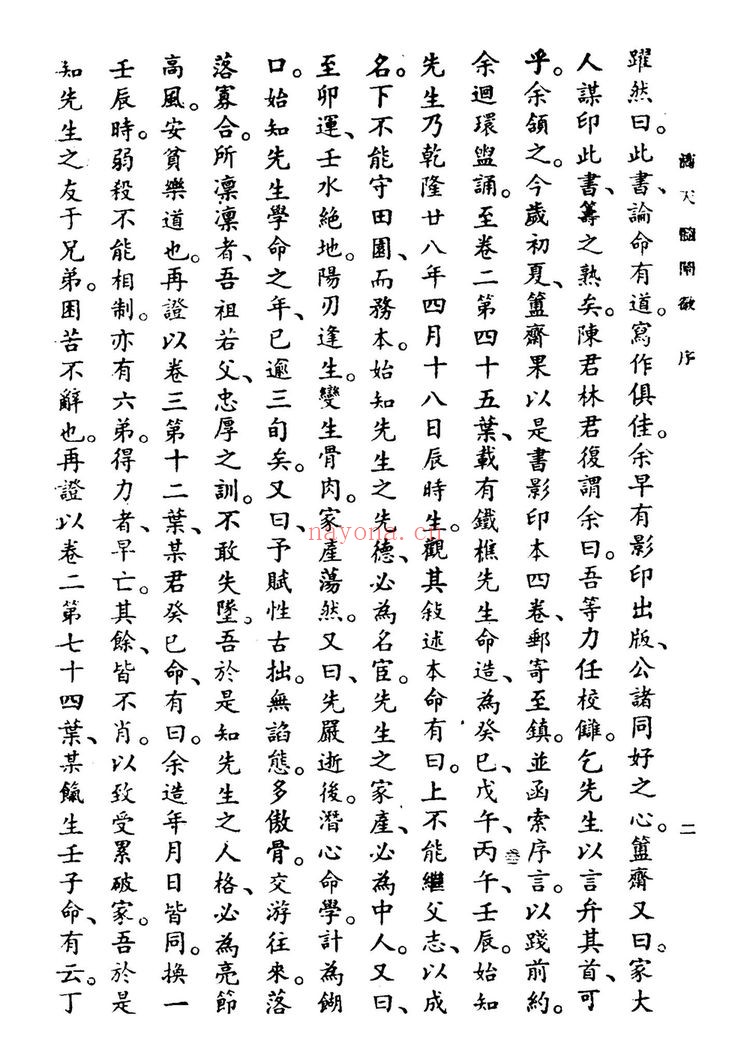 滴天髓闡微 序 二
躍然曰。此書、論命有道。寫作俱佳。余早有影印出版、公諸同好之心。簠齋又曰、家大
人謀印此書、籌之熟矣。陳君林君復謂余曰。吾等力任校讎。乞先生以言弁其首、可
乎。余頷之。今歲初夏、簠齋果以是書影印本四卷、郵寄至鎮。並函索序言。以踐前約。
余迴環盥誦。至卷二第四十五葉、載有鐵樵先生命造、為癸巳、戊午、丙午、壬辰。始知
先生乃乾隆廿八年四月十八日辰時生。觀其敍述本命有曰。上不能繼父志、以成
名。下不能守田園、而務本。始知先生之先德、必為名宦。先生之家產、必為中人。又曰、
至卯運、壬水絕地。陽刃逢生。變生骨肉。家產蕩然。又曰、先嚴逝後。潛心命學。計為餬
口。始知先生學命之年、已逾三旬矣。又曰、予賦性古拙。無諂態。多傲骨。交游往來。落
落寡合。所凜凜者、吾祖若父、忠厚之訓。不敢失墜。吾於是知先生之人格、必為亮節
高風。安貧樂道也。再證以卷三第十二葉、某君癸巳命、有曰。余造年月日皆同。換一
壬辰時。弱殺不能相制。亦有六弟。得力者、早亡。其餘、皆不肖。以致受累破家。吾於是
知先生之友于兄弟。困苦不辭也。再證以卷二第七十四葉、某餼生壬子命、有云。丁
nayona.cn